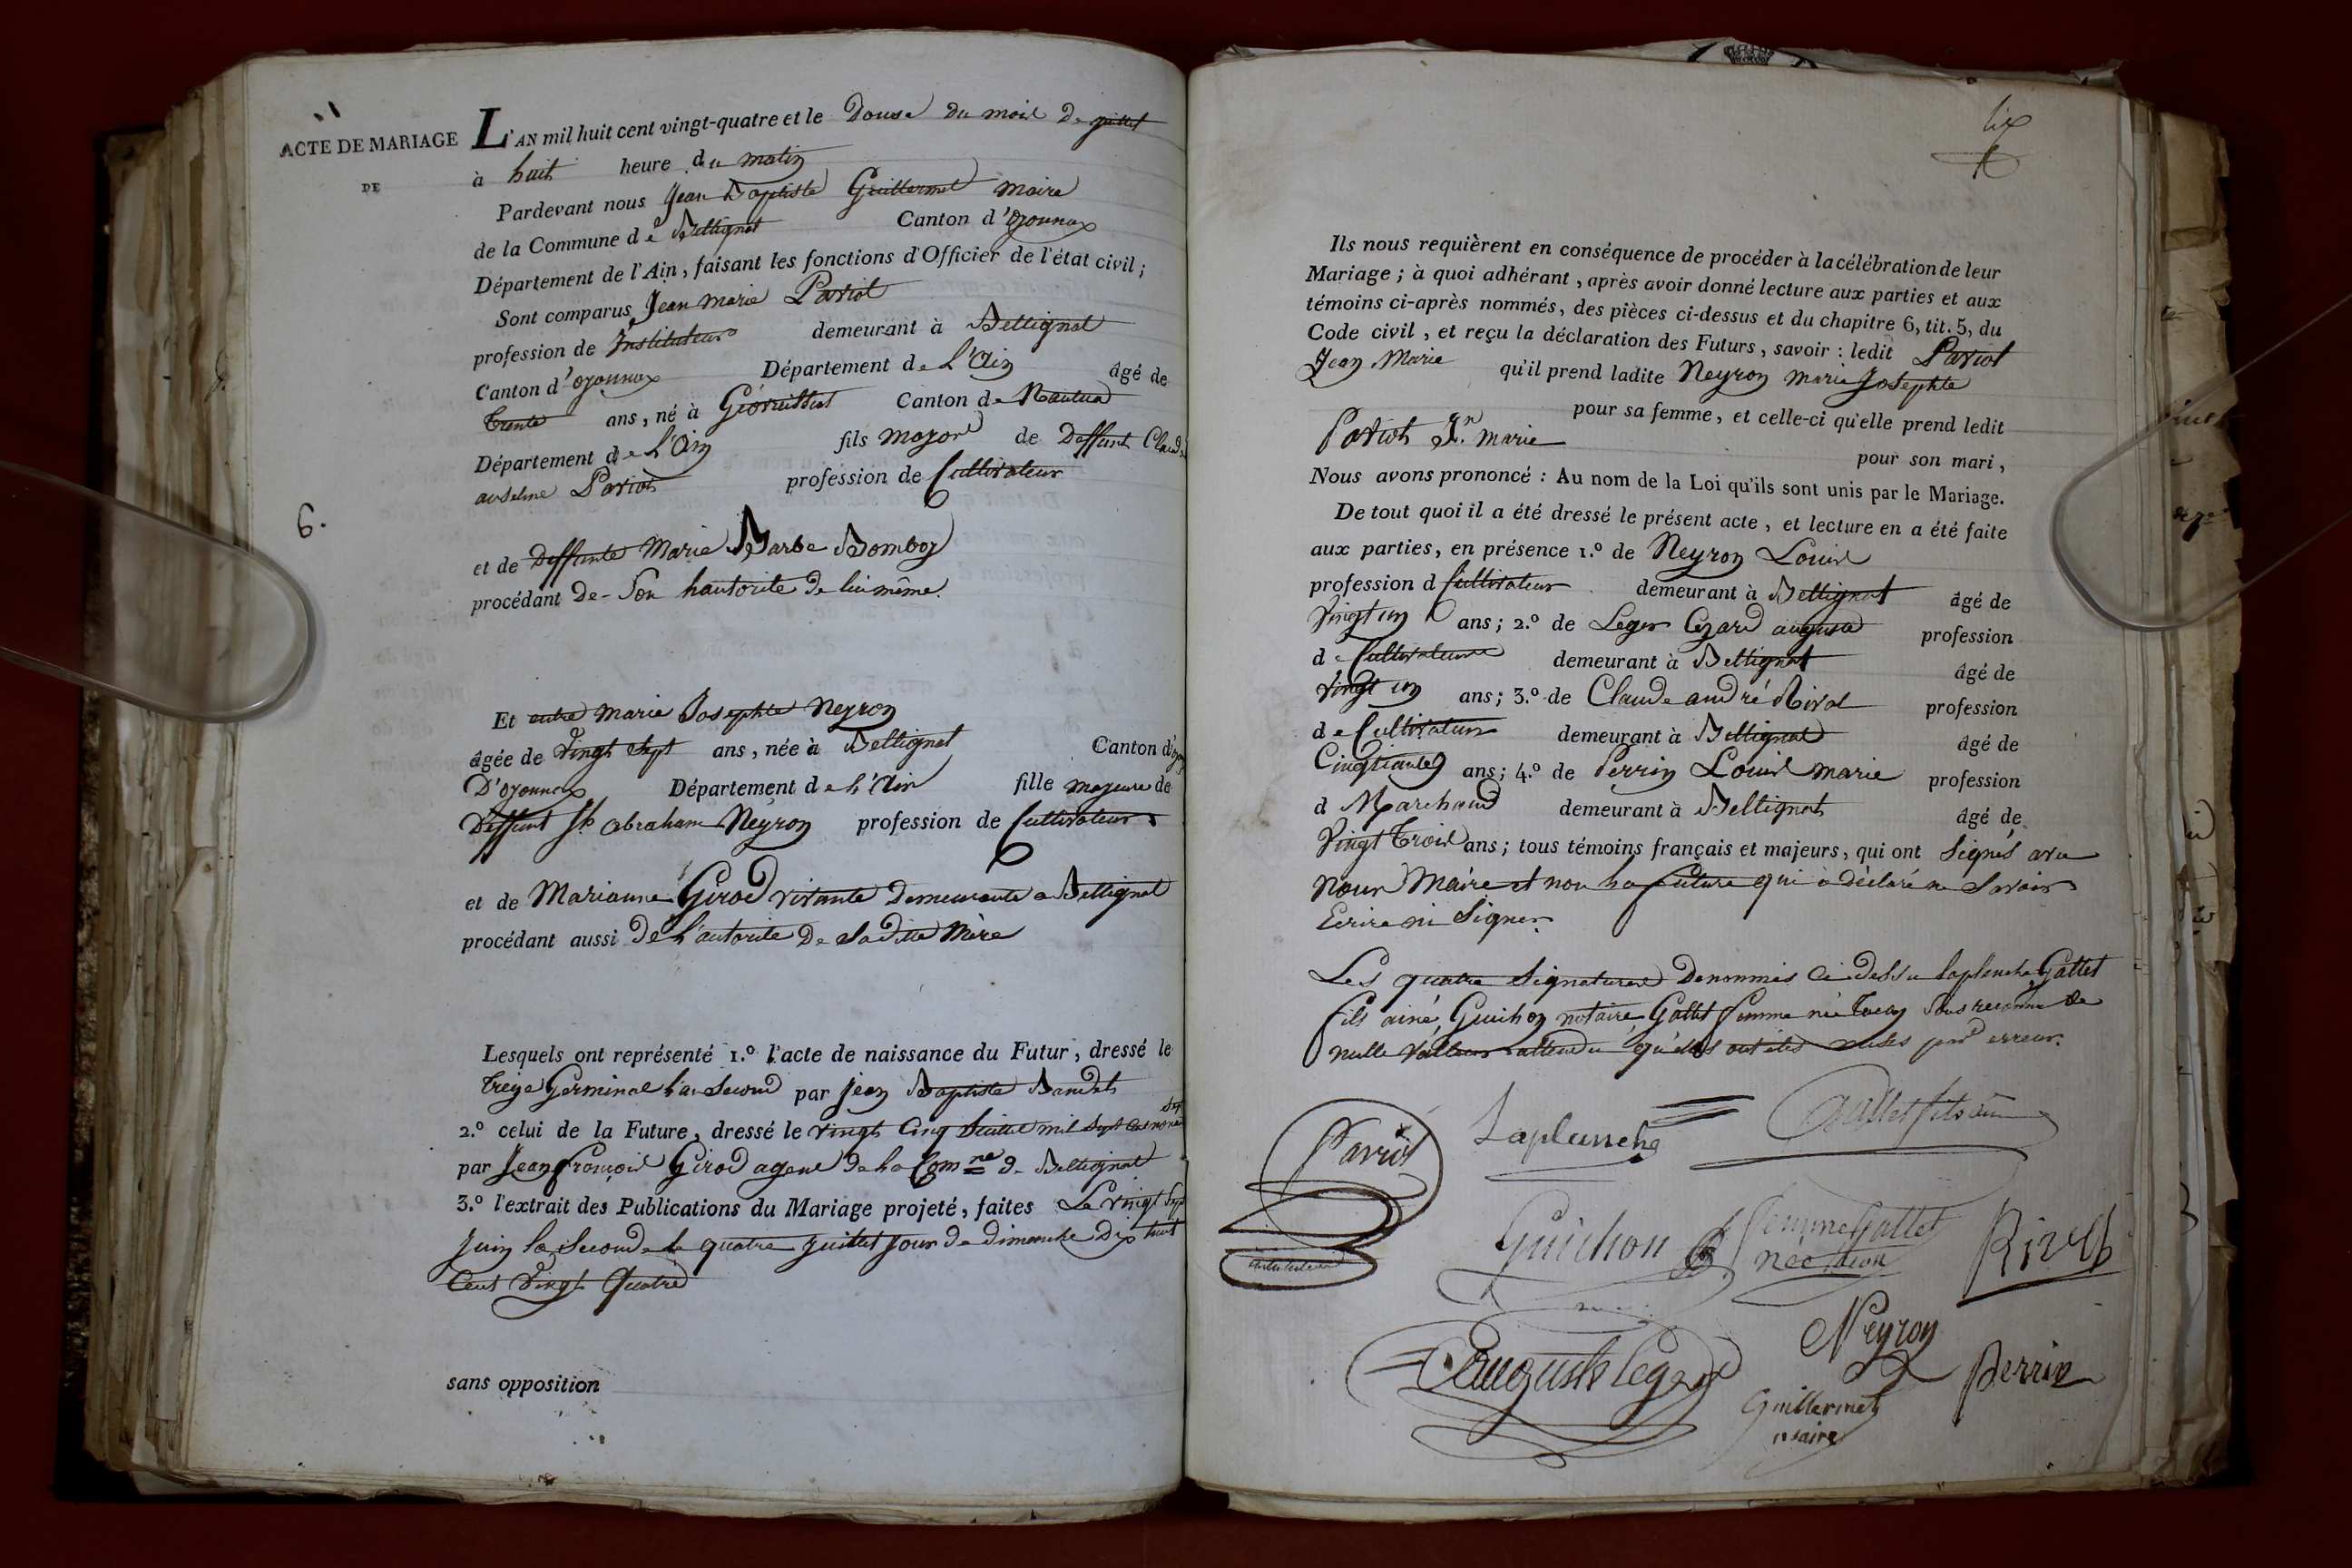 ACTE DE MARIAGE
DE
6.
L'AN mil huit cent vingt-quatre et le Douse du mois De juillet
à huit heure du matin
Pardevant nous Jean Baptiste Guillermet maire
de la Commune de Bellignat Canton d'oyonnax
Département de l'Ain, faisant les fonctions d'Officier de l'état civil ;
Sont comparus Jean marie Pariot
profession de Instituteur demeurant à Bellignat
Canton d'oyonnax Département de L'Ain âgé de
Trente ans, né à Géovuissiat Canton de Nantua
Département de L'Ain fils major de Deffunt Claude
anselme Pariot profession de Cultivateur
et de Deffunte Marie Barbe Bomboy
procédant De Son hautorité De lui même.
Et entre marie Josephte Neyron
âgée de vingt sept ans, née à Bellignat Canton d'oy
D'oyonnax Département de L'Ain fille majeure de
Deffunt Jh abraham Neyron profession de Cultivateur
et de Marianne Girod vivante Demeurante a Bellignat
procédant aussi De L'autorité De Saditte Mère
Lesquels ont représenté 1.º l'acte de naissance du Futur, dressé le
treize Germinal L'an Second par Jean Baptiste Baudet
2.º celui de la Future, dressé le vingt Cinq Juillet mil Sept Cent nonante Sept
par Jean françois Girod agent De La Comne De Bellignat
3.º l'extrait des Publications du Mariage projeté, faites Le vingt Sept
Juin La Seconde Le quatre Juillet Jour De dimanche Dix huit
Cent vingt Quatre
sans opposition
lix
Ils nous requièrent en conséquence de procéder à la célébration de leur
Mariage ; à quoi adhérant, après avoir donné lecture aux parties et aux
témoins ci-après nommés, des pièces ci-dessus et du chapitre 6, tit. 5, du
Code civil, et reçu la déclaration des Futurs, savoir : ledit Pariot
Jean Marie qu'il prend ladite Neyron Marie Josephte
pour sa femme, et celle-ci qu'elle prend ledit
Pariot Jn. marie
pour son mari,
Nous avons prononcé : Au nom de la Loi qu'ils sont unis par le Mariage.
De tout quoi il a été dressé le présent acte, et lecture en a été faite
aux parties, en présence 1.º de Neyron Louis
profession d Cultivateur demeurant à Bellignat âgé de
Vingt un ans ; 2.º de Leger Cezard auguste profession
de Cultivateur demeurant à Bellignat âgé de
vingt un ans ; 3.º de Claude andré Rivat profession
de Cultivateur demeurant à Bellignat âgé de
ans ; 4.º de Perrin Louis marie profession
d Marchand demeurant à Bellignat âgé de
Vingt Trois ans ; tous témoins français et majeurs, qui ont Signés avec
nous Maire et non La future qui à déclaré ne Savoir
Ecrire ni Signer.
Les quatre Signatures Denommés Ci-Dessu Laplanche Gallet
fils ainé, Guichon notaire Gallet femme née Sous reconnu de
nulle valleur attendu qu'elles ont étés mises par erreur.
Pariot
Laplanche
Gallet fils ainé
Guichon
femme Gallet
née
Rivat
Auguste leger
Neyron
Perrin
Guillermet
maire